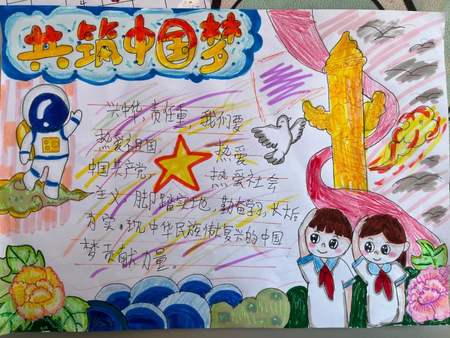 共筑中国梦
兴中华,责任重,我们要
热爱祖国,热爱
中国共产党,热爱社会
主义,脚踏实地,勤奋学习,长大后
为实现中华民族伟大复兴的中国
梦贡献力量。